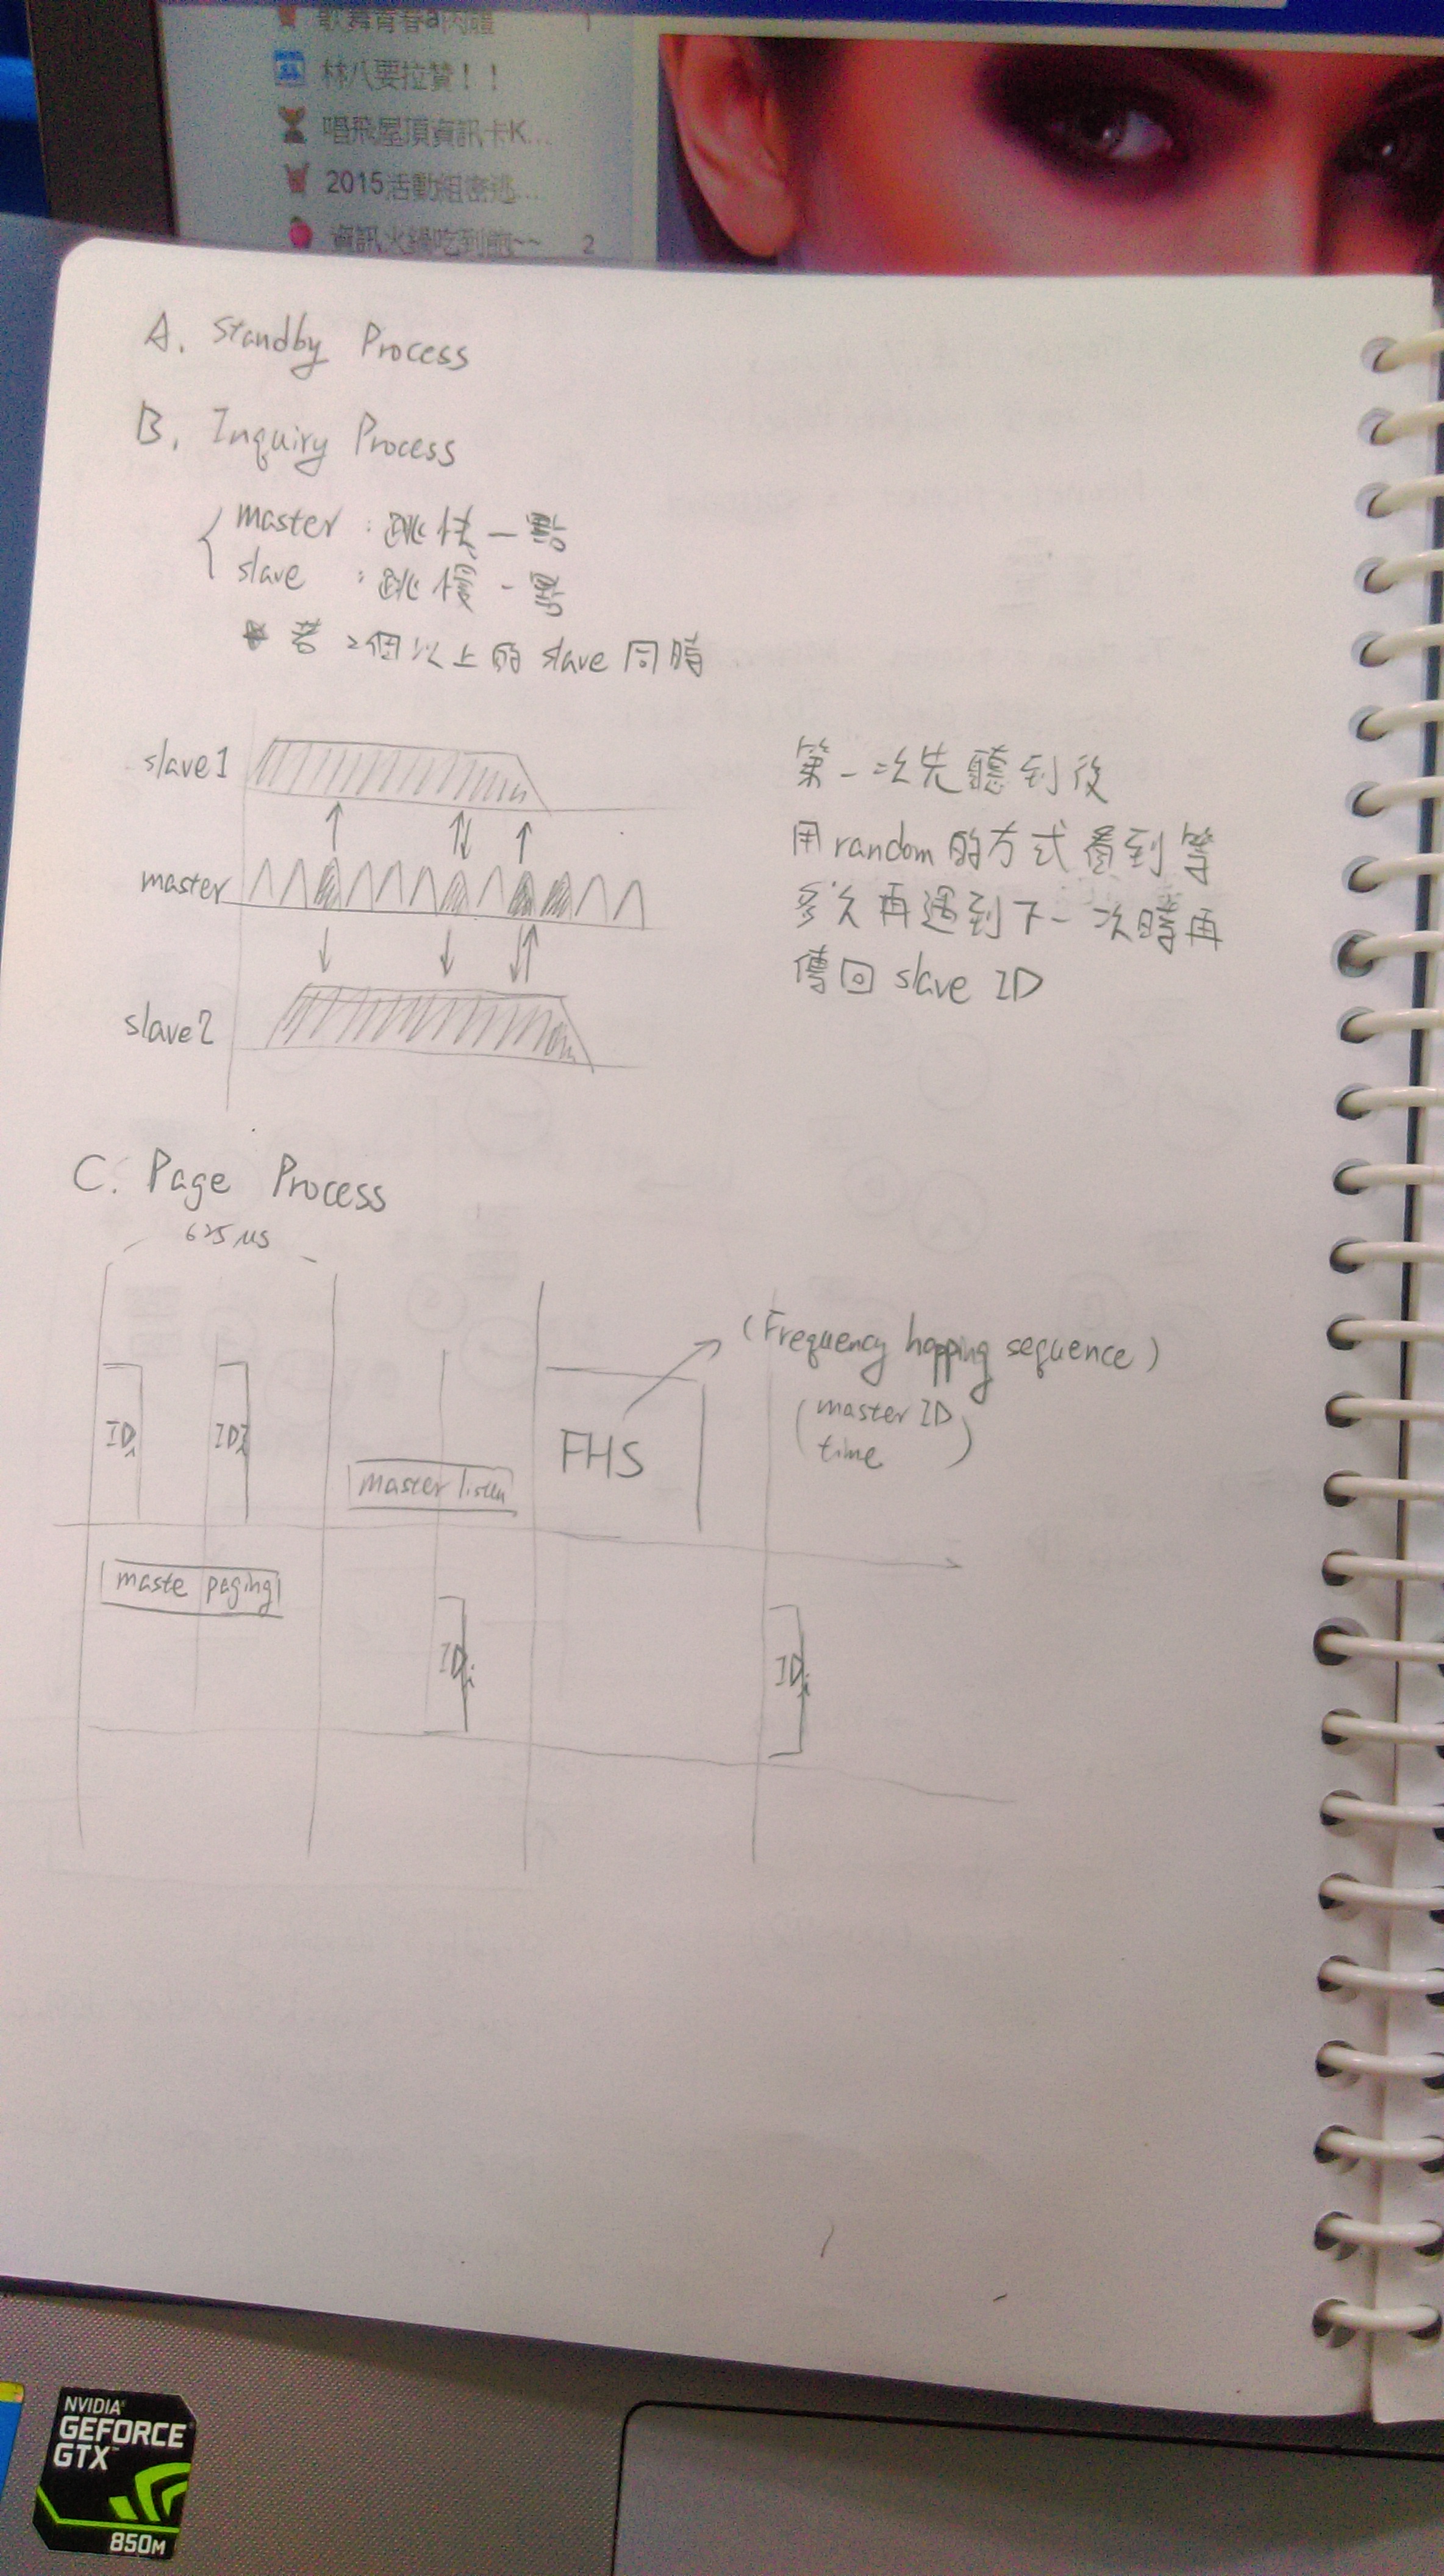 林八要拉贊！！
唱飛屋頂資訊卡K...
2015活動組密逃...
資訊火鍋吃到飽~~ 2
A. Standby Process
B. Inquiry Process
master : 跳快一點
slave : 跳慢一點
若 2個以上的 slave 同時
slave1
master
slave2
第一次先聽到後
用random的方式看到等
多久再遇到下一次時再
傳回 slave ID
C. Page Process
625 μs
ID
ID
master listen
FHS
(Frequency hopping sequence)
(master ID
time)
maste paging
IDi
IDi
NVIDIA
GEFORCE
GTX
850M